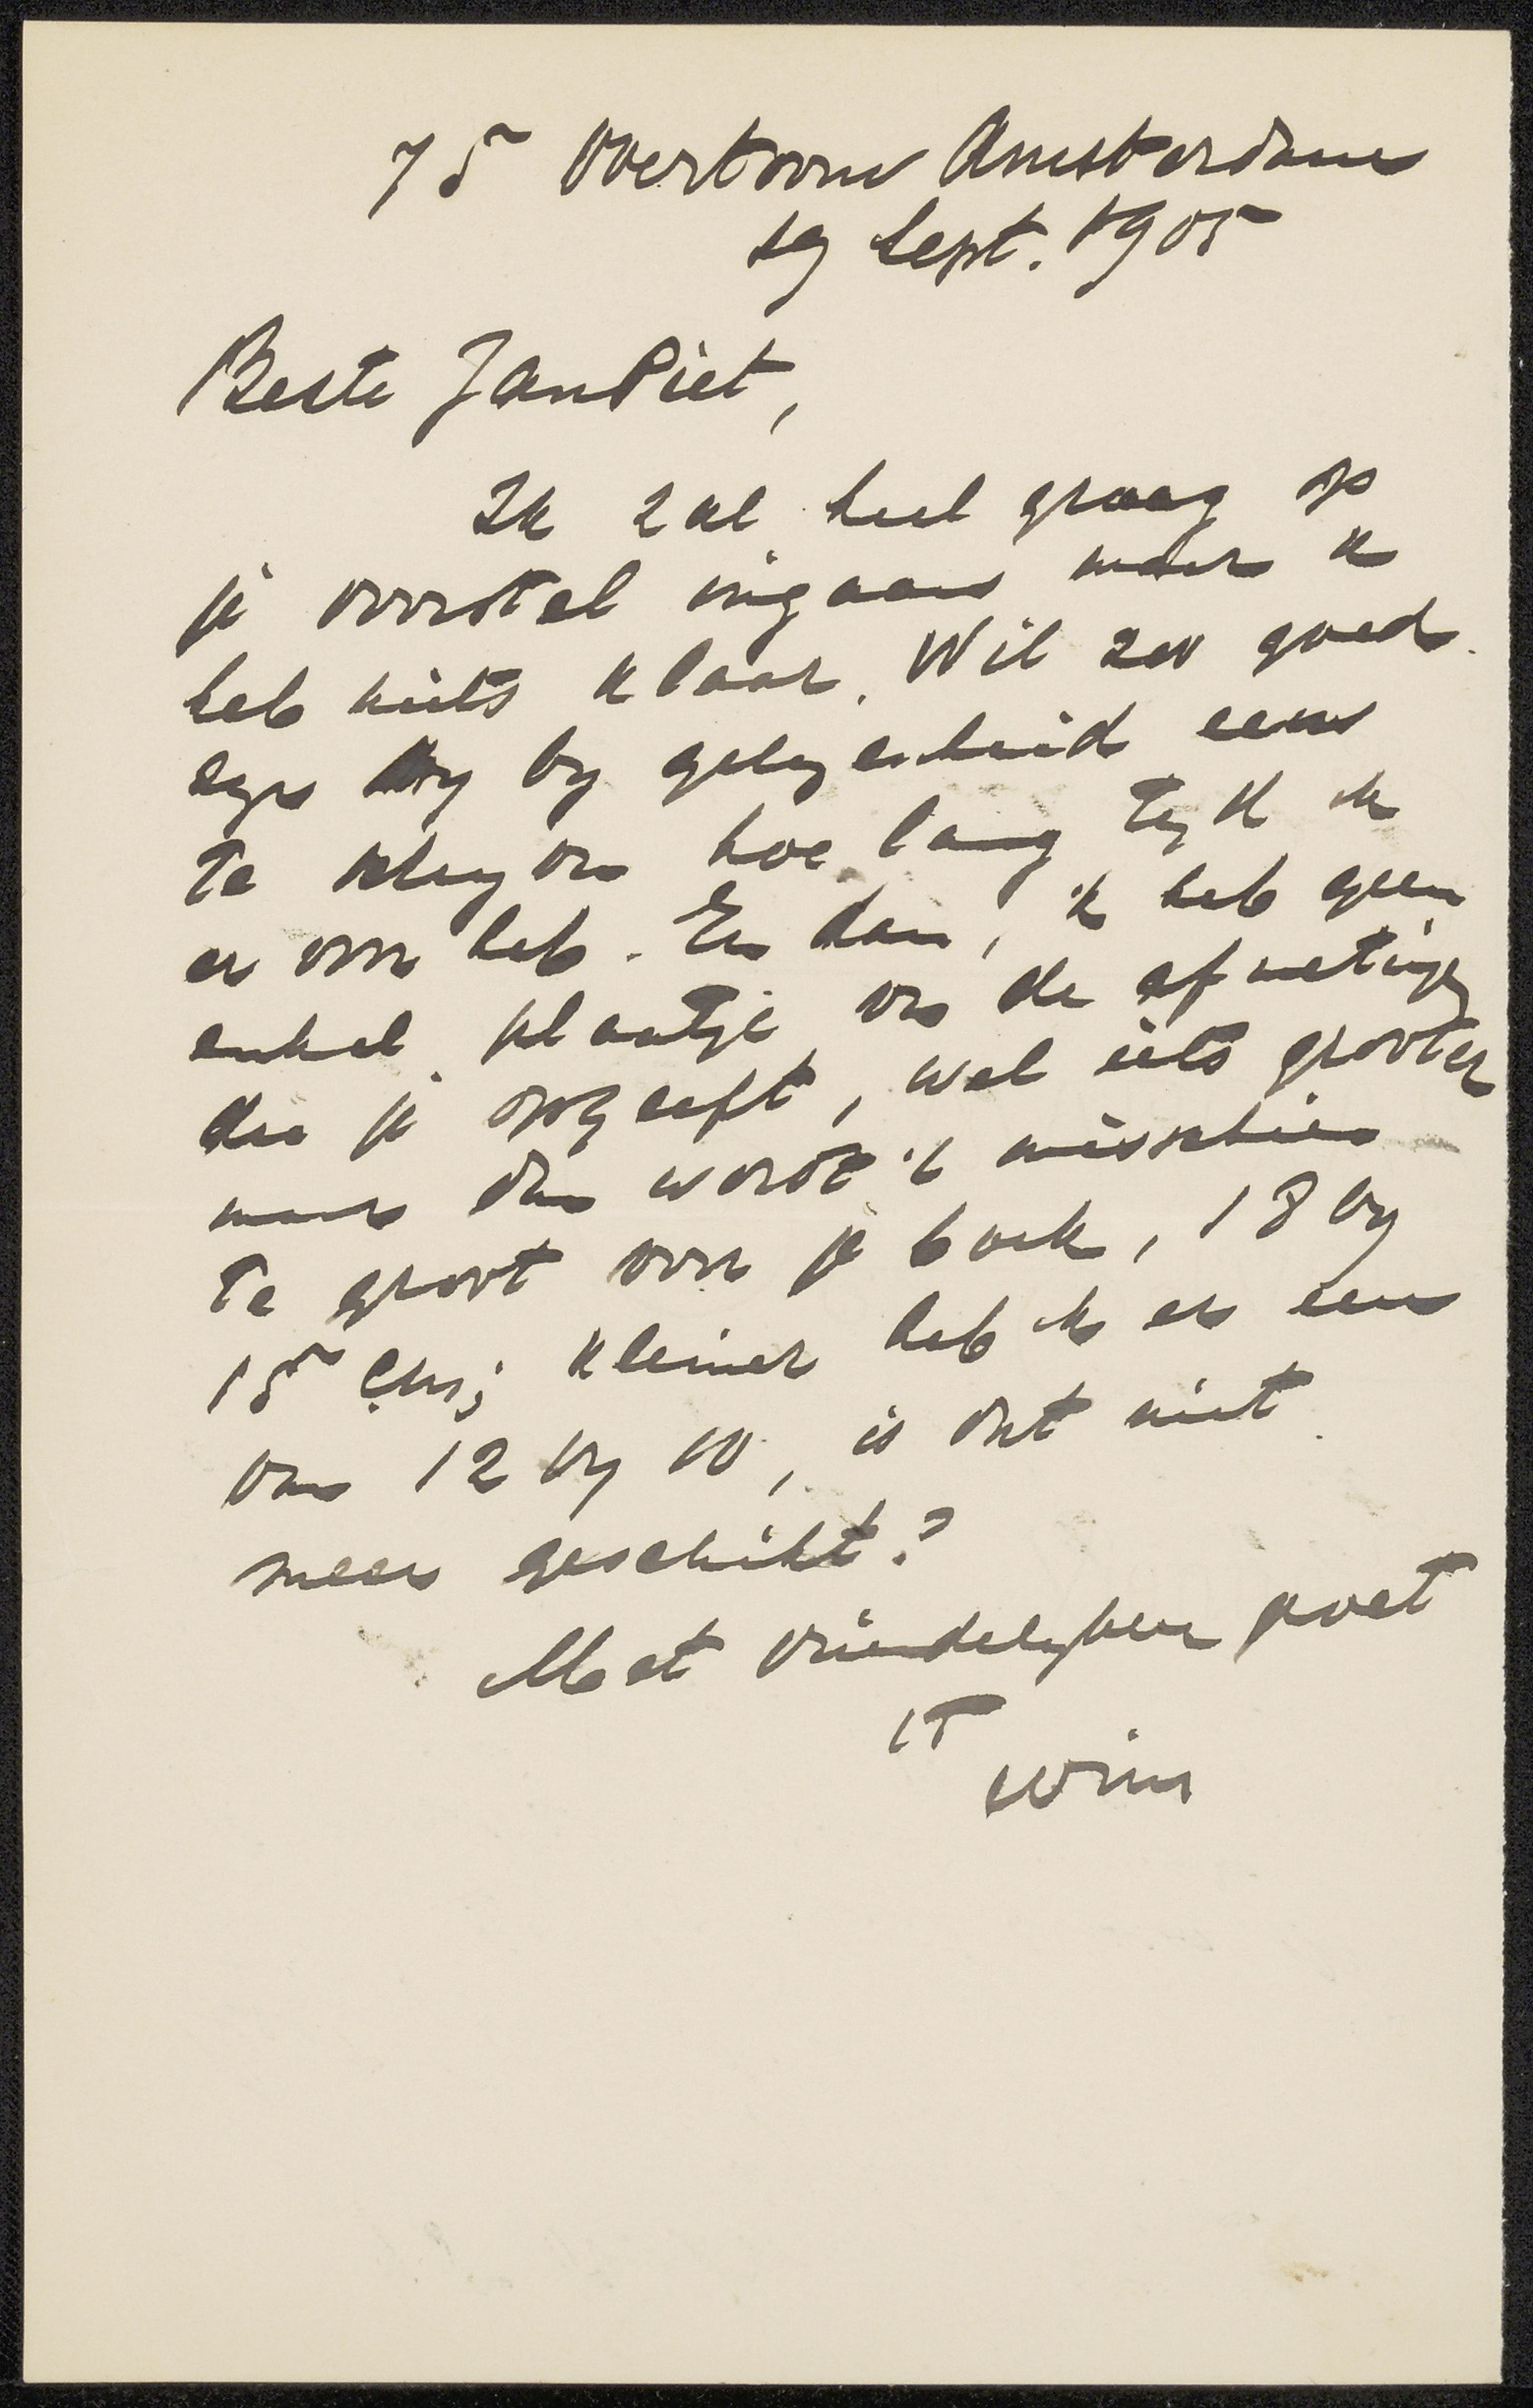 75 Overtoom Amsterdam
19 Sept. 1905
Beste JanPiet,
Ik zal heel graag op
je voorstel ingaan maar ik
heb niets klaar. Wil zoo goed
zijn my by gelegenheid eens
te schryven hoe lang tyd ik
er voor heb. En dan, ik heb geen
enkel plaatje van de afmetingen
die je opgeeft, wel iets grooter
maar dan wordt 't misschien
te groot voor je boek, 18 by
15 cM; kleiner heb ik er een
van 12 by 10, is dat niet
meer geschikt?
Met vriendelyken groet
tt
Wim